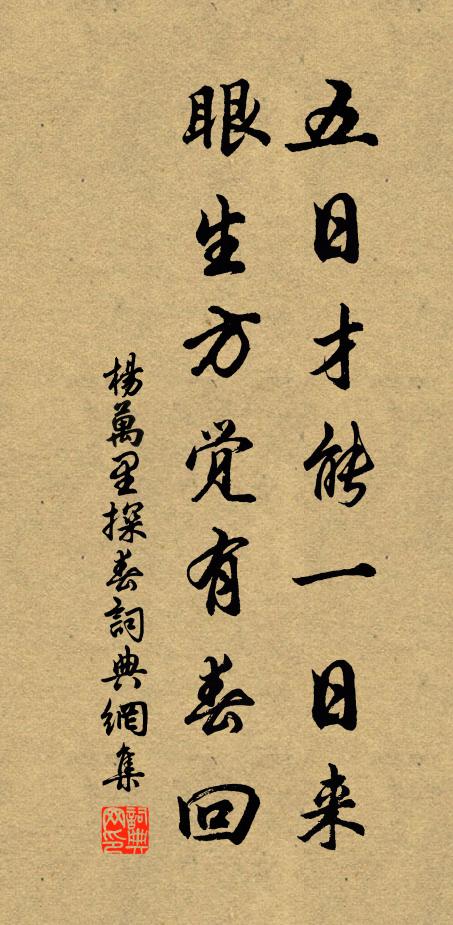 五日才能一日来
眼生方觉有春回
楊萬里探春詞典網集
詞典网印